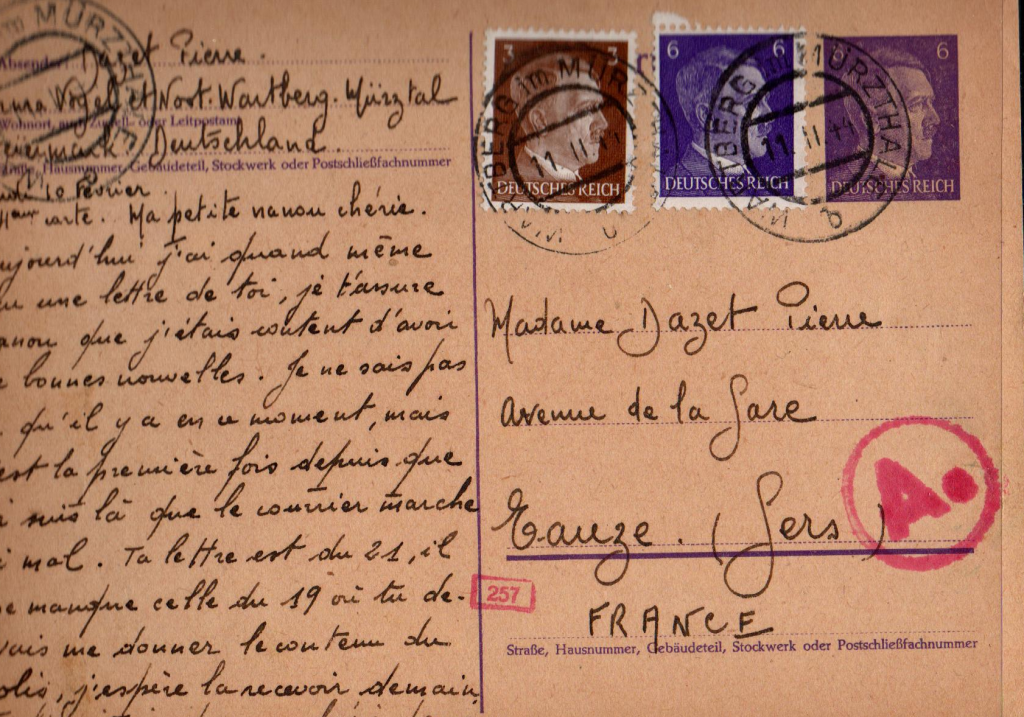 Absender: Dazet Pierre.
Vogel et Noot. Wartberg. Mürztal
Wohnort, auch Zustell- oder Leitpostamt
Deutschland.
Straße, Hausnummer, Gebäudeteil, Stockwerk oder Postschließfachnummer
10 Février
carte. Ma petite nanou chérie.
aujourd'hui j'ai quand même
eu une lettre de toi, je t'assure
nanou que j'étais content d'avoir
de bonnes nouvelles. Je ne sais pas
ce qu'il y a en ce moment, mais
c'est la première fois depuis que
je suis là que le courrier marche
si mal. Ta lettre est du 21, il
me manque celle du 19 où tu de-
vais me donner le contenu du
colis, j'espère la recevoir demain,
3 3
DEUTSCHES REICH
6 6
DEUTSCHES REICH
6
DEUTSCHES REICH
WARTBERG im MÜRZTHAL
11. II. 44
WARTBERG im MÜRZTHAL
11. II. 44
b
Madame Dazet Pierre
Avenue de la Gare
Eauze. (Gers)
FRANCE
Straße, Hausnummer, Gebäudeteil, Stockwerk oder Postschließfachnummer
A.
257